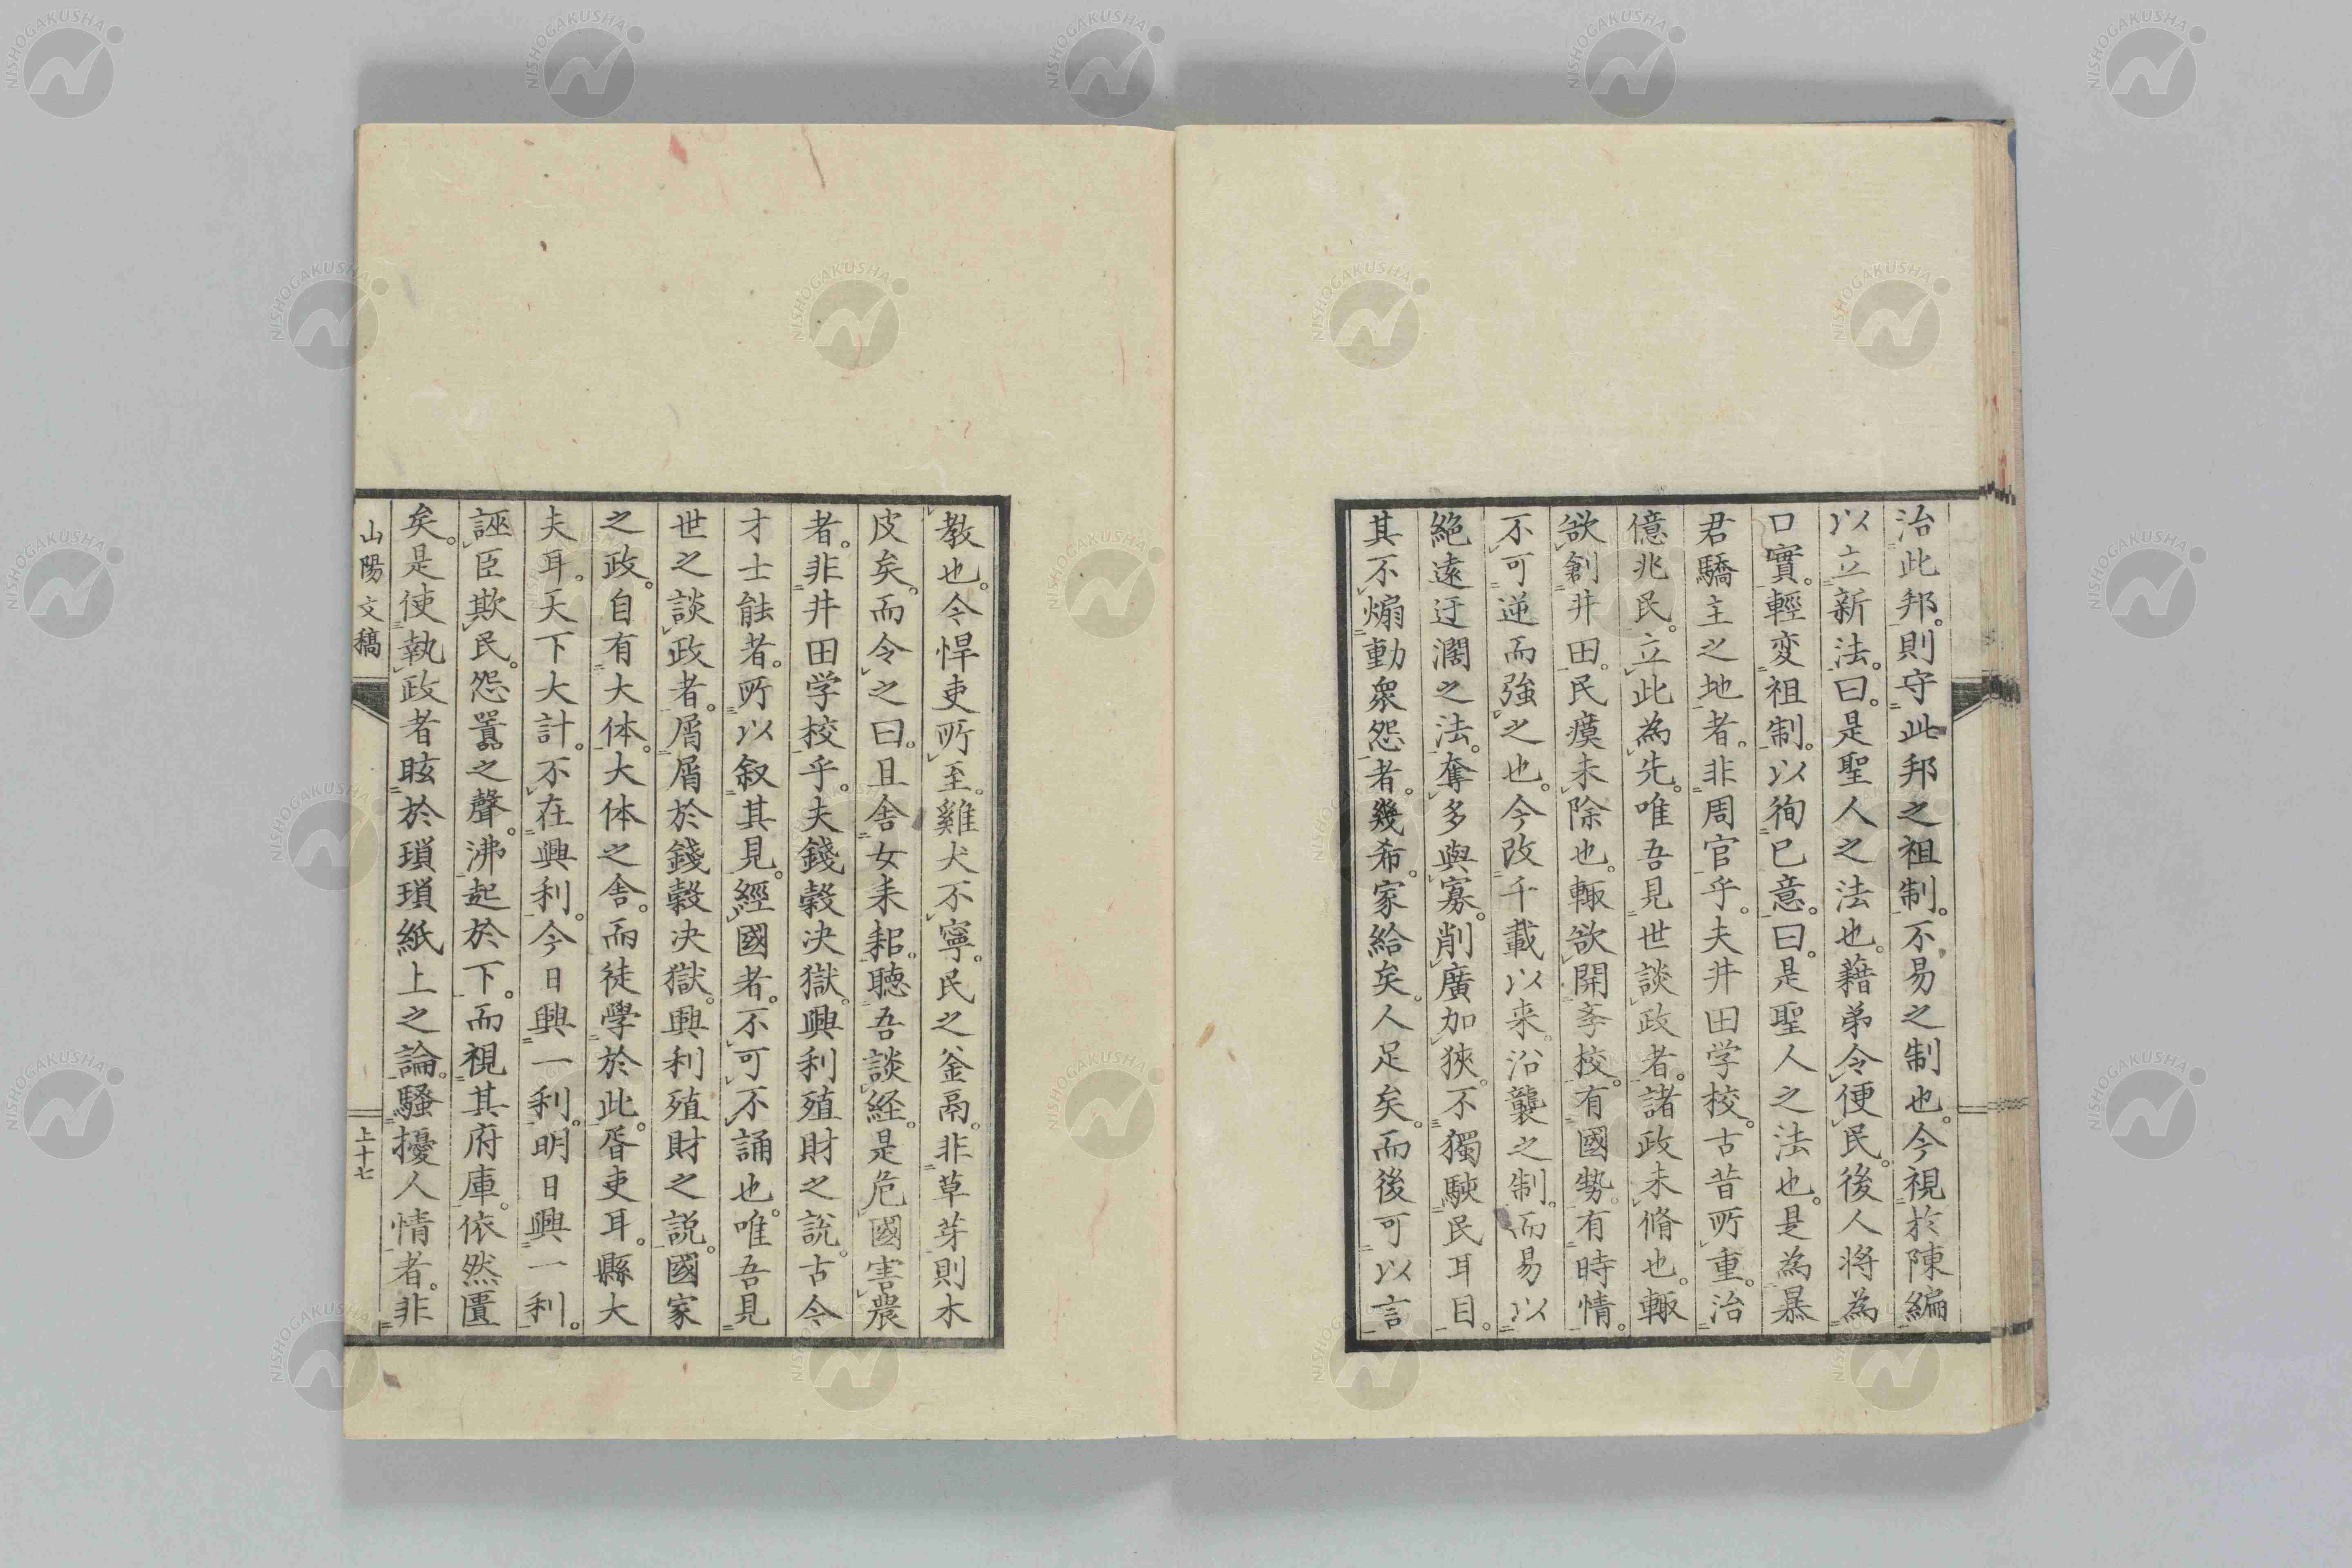 治此邦。則守此邦之祖制。不易之制也。今視於陳編
以立新法。曰。是聖人之法也。藉弟令便民。後人將為
口實。輕変祖制。以徇已意。曰。是聖人之法也。是為暴
君驕主之地者。非周官乎。夫井田学校。古昔所重。治
億兆民。立此為先。唯吾見世談政者。諸政未脩也。輙
欲創井田。民瘼未除也。輙欲開斈校。有國勢。有時情。
不可逆而強之也。今改千載以来。沿襲之制。而易以
絶遠迂濶之法。奪多與寡。削廣加狹。不獨駴民耳目。
其不煽動衆怨者。幾希。家給矣。人足矣。而後可以言
教也。今悍吏所至。雞犬不寧。民之釜鬲。非草芽則木
皮矣。而令之曰。且舎女耒耜。聴吾談経。是危國害農
者。非井田学校乎。夫錢穀决獄。興利殖財之説。古今
才士能者。所以叙其見。經國者。不可不誦也。唯吾見
世之談政者。屑屑於錢穀决獄。興利殖財之説。國家
之政。自有大体。大体之舎。而徒學於此。胥吏耳。縣大
夫耳。天下大計。不在興利。今日興一利。明日興一利。
誣臣欺民。怨嚚之聲。沸起於下。而視其府庫。依然匱
矣。是使執政者眩於瑣瑣紙上之論。騷擾人情者。非
山陽文稿
上十七
NISHOGAKUSHA